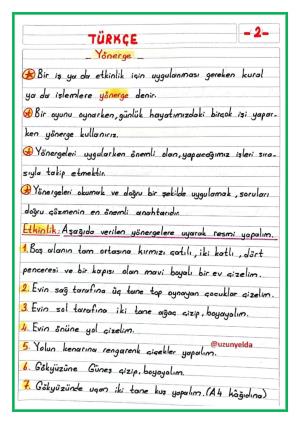 TÜRKÇE
-2-
Yönerge
Bir iş ya da etkinlik için uygulanması gereken kural
ya da işlemlere yönerge denir.
Bir oyunu oynarken, günlük hayatımızdaki birçok işi yapar-
ken yönerge kullanırız.
Yönergeleri uygularken önemli olan, yapacağımız işleri sıra-
sıyla takip etmektir.
Yönergeleri okumak ve doğru bir şekilde uygulamak, soruları
doğru çözmenin en önemli anahtarıdır.
Etkinlik: Aşağıda verilen yönergelere uyarak resmi yapalım.
1. Boş alanın tam ortasına kırmızı çatılı, iki katlı, dört
penceresi ve bir kapısı olan mavi boyalı bir ev çizelim.
2. Evin sağ tarafına üç tane top oynayan çocuklar çizelim.
3. Evin sol tarafına iki tane ağaç çizip, boyayalım.
4. Evin önüne yol çizelim.
@uzunyelda
5. Yolun kenarına rengarenk çiçekler yapalım.
6. Gökyüzüne Güneş çizip, boyayalım.
7. Gökyüzünde uçan iki tane kuş yapalım. (A4 kâğıdına)